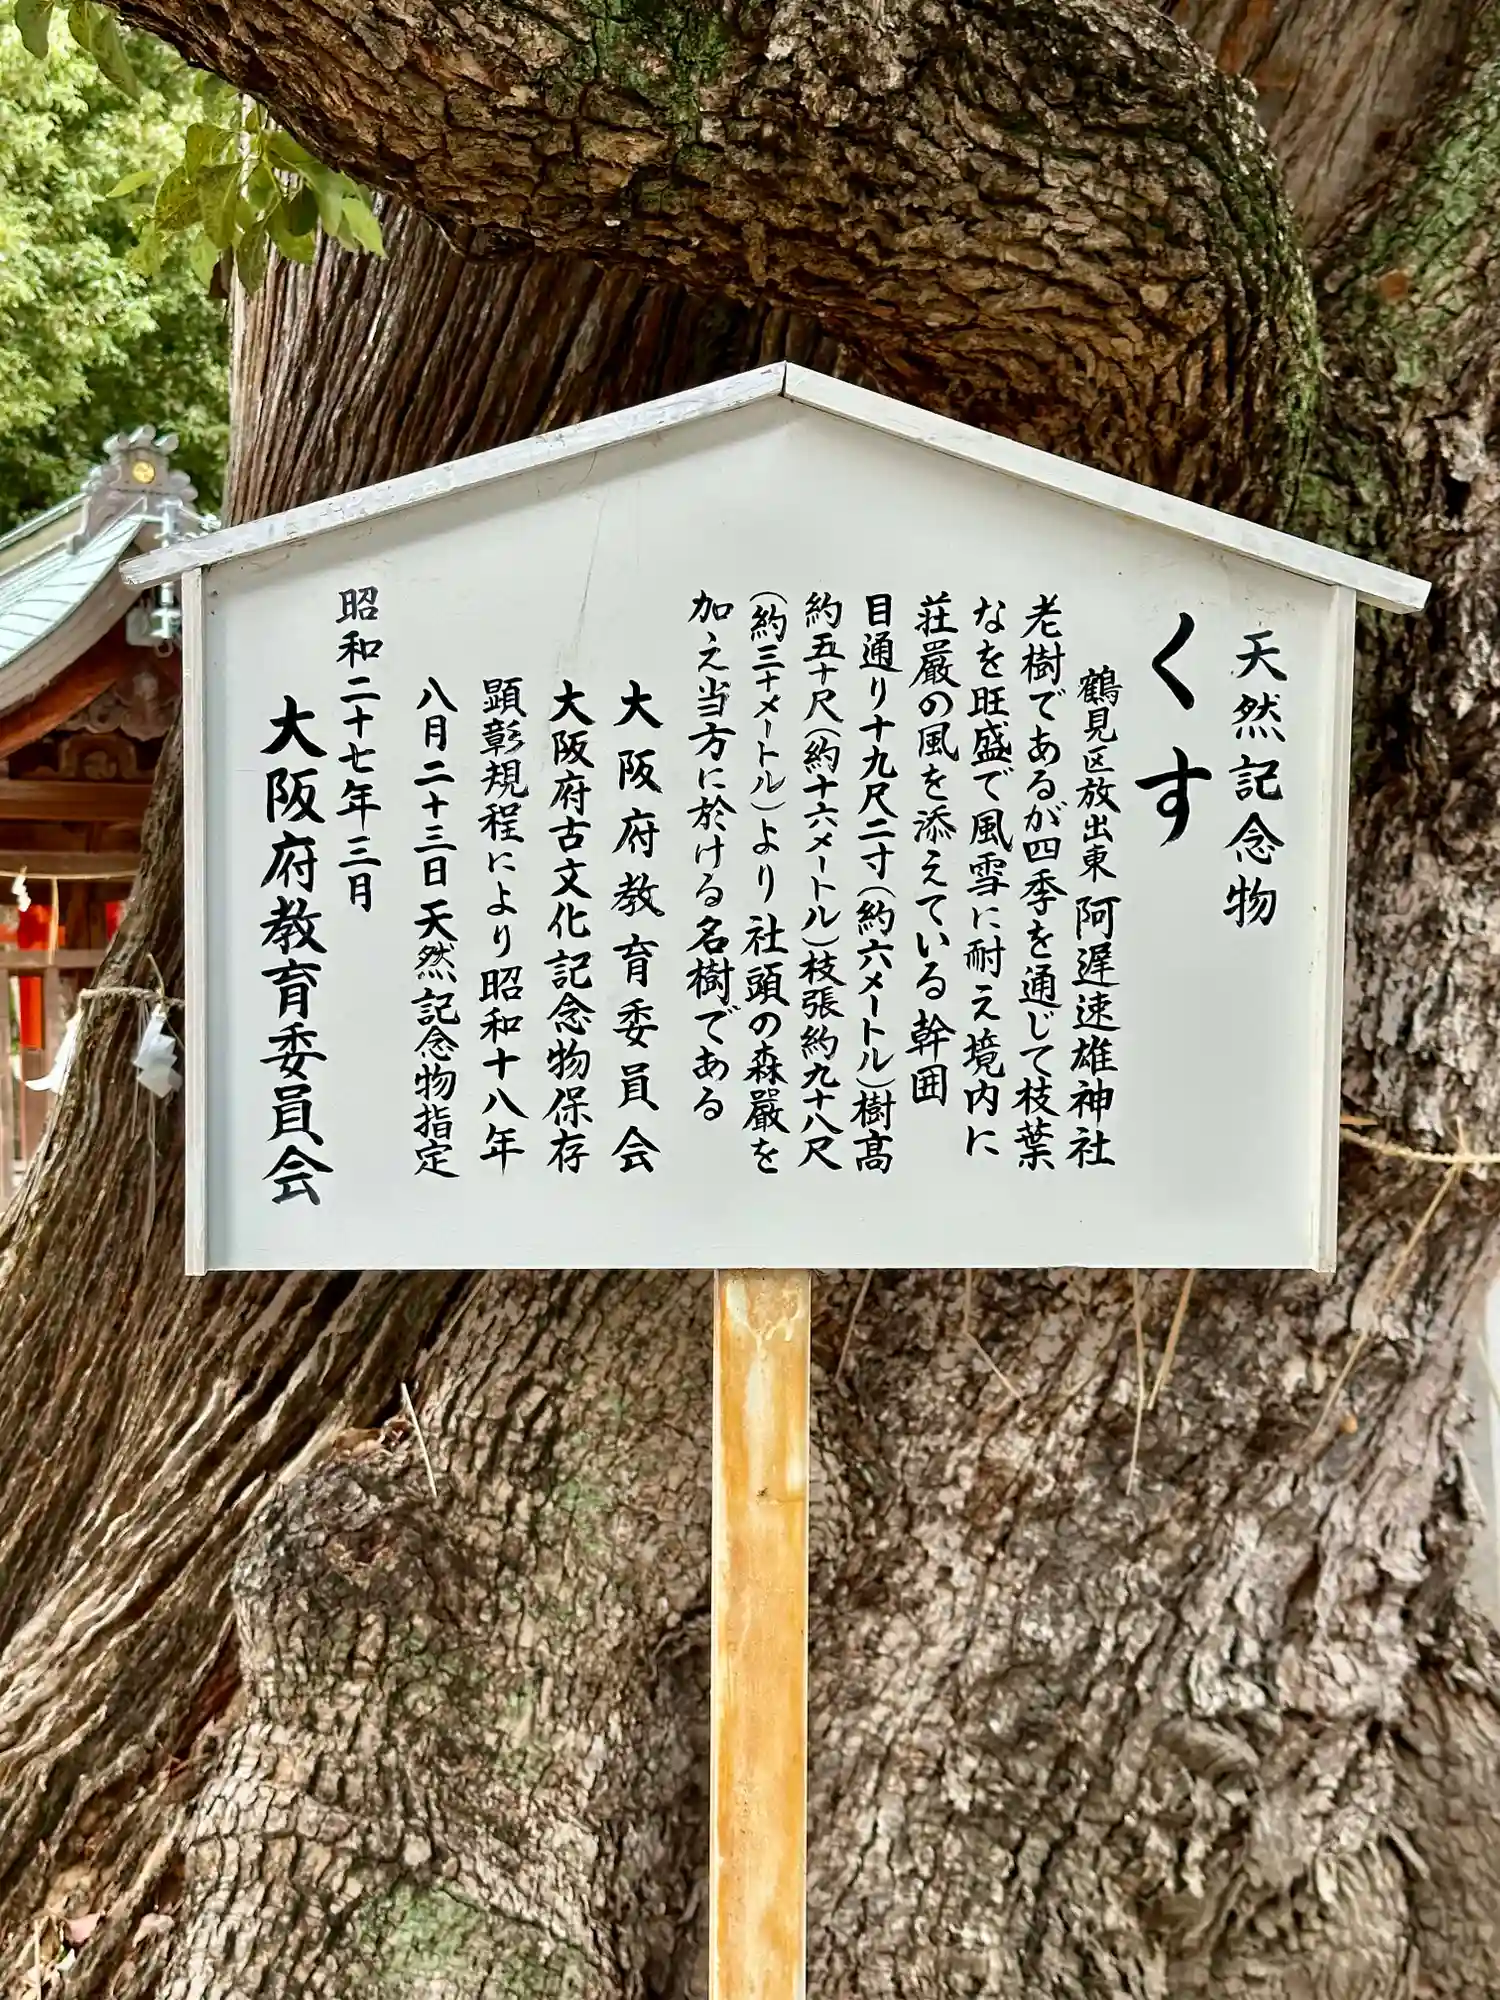 天然記念物
くす
鶴見区放出東 阿遅速雄神社
老樹であるが四季を通じて枝葉
なを旺盛で風雪に耐え境内に
荘厳の風を添えている幹囲
目通り十九尺二寸(約六メートル)樹髙
約五十尺(約十六メートル)枝張約九十八尺
(約三十メートル)より社頭の森嚴を
加え当方に於ける名樹である
大阪府教育委員会
大阪府古文化記念物保存
顕彰規程により昭和十八年
八月二十三日天然記念物指定
昭和二十七年三月
大阪府教育委員会